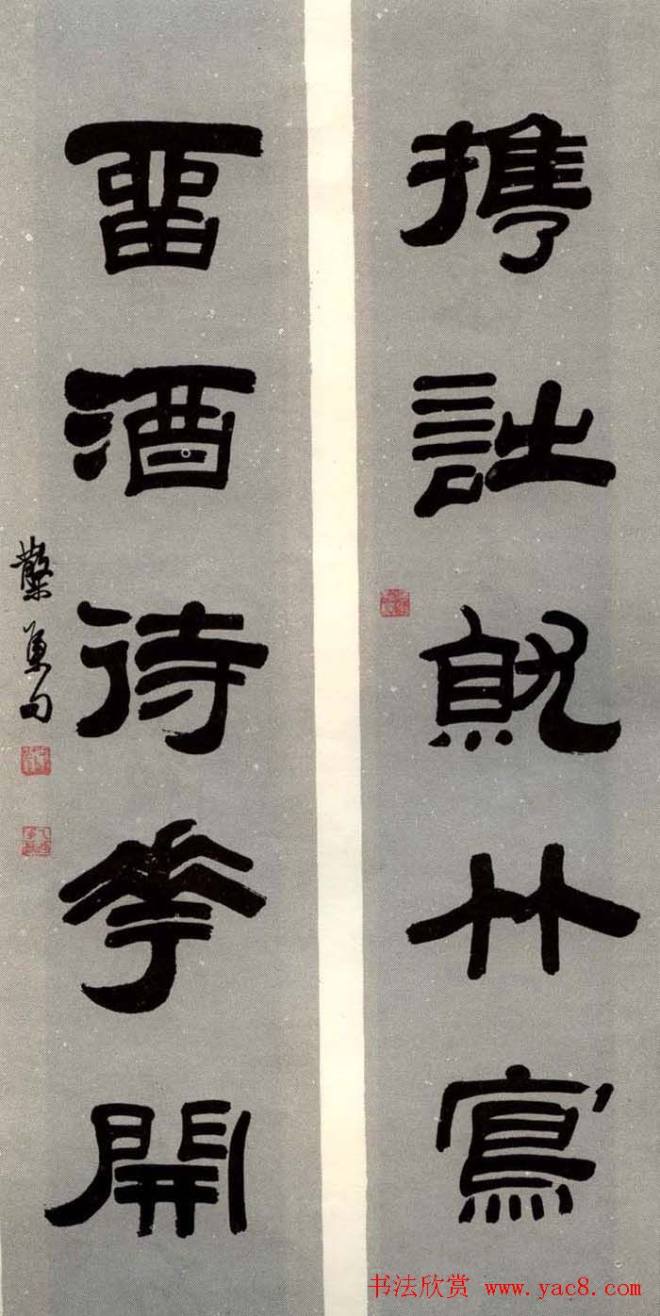 携詩就竹寫
留酒待花開
書法欣赏 www.yac8.com